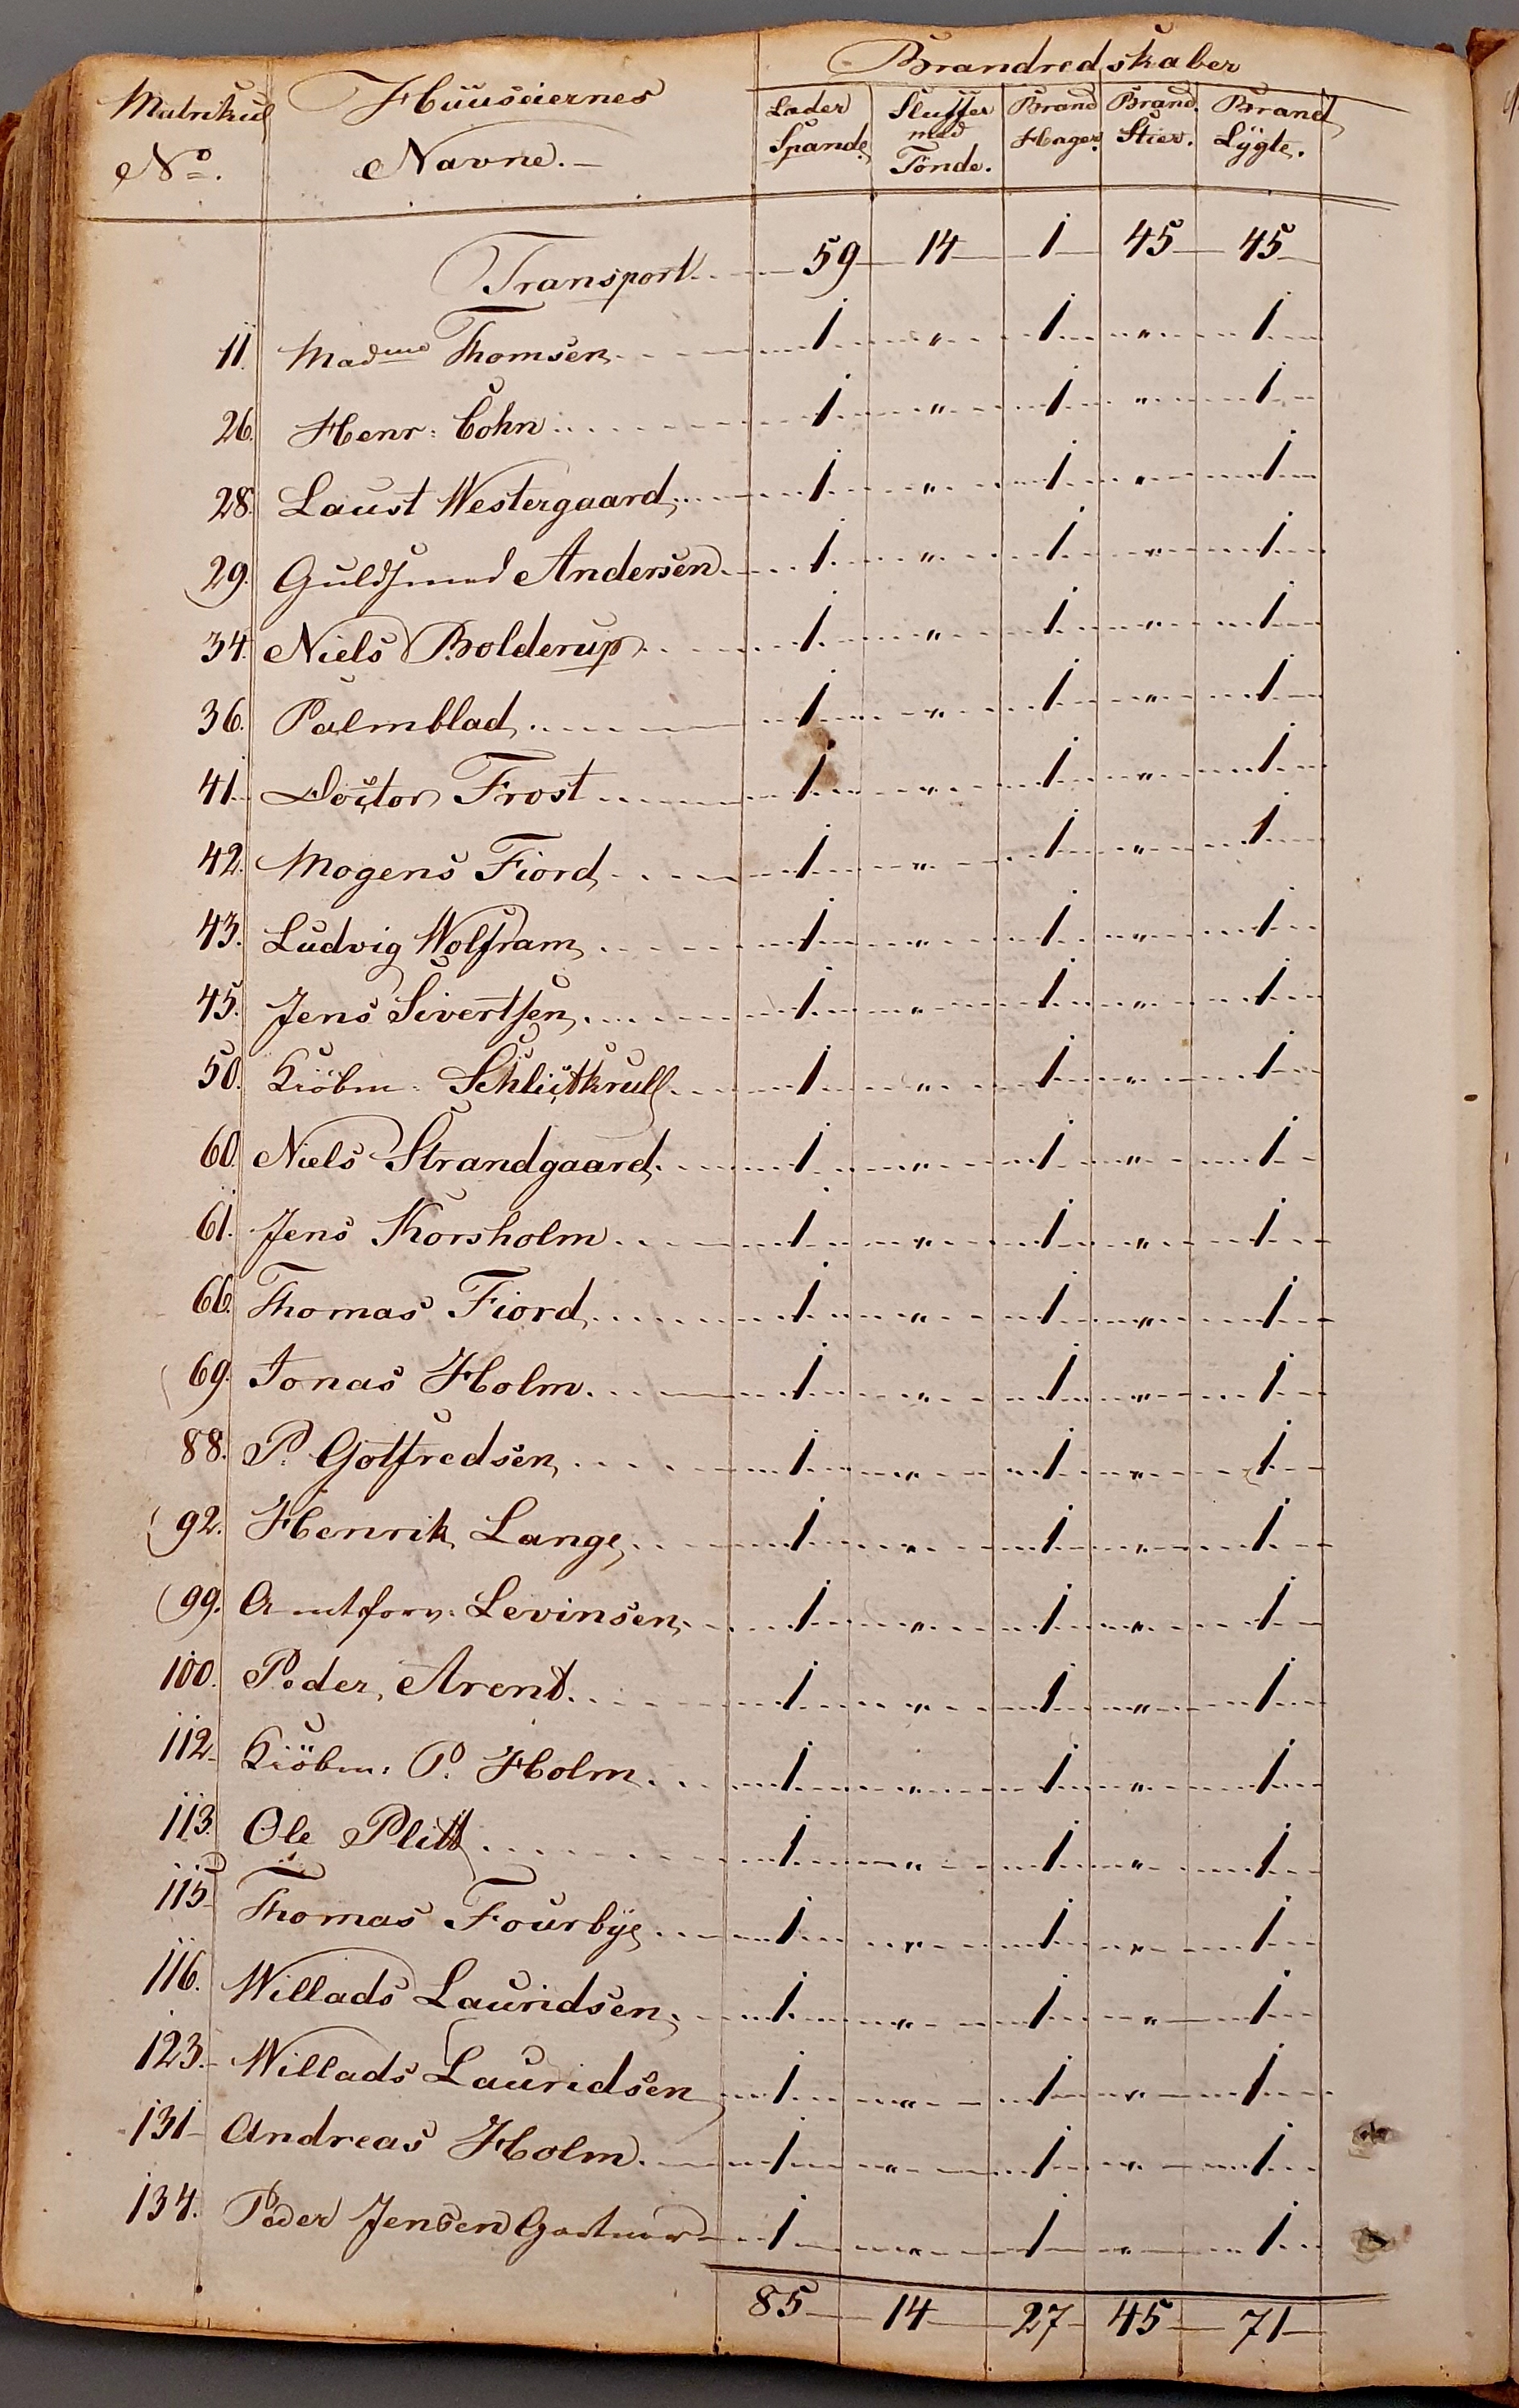 Brandredskaber
Matrikul Huuseiernes Læder Sluffer Brand Brand Brand
No. Navne. Spande. med Hager. Stier. Lÿgte.
Tönde.
Transport 59 14 1 45 45
11. Madme Thomsen 1 " 1 " 1
26. Henr: Cohn 1 " 1 " 1
28. Laust Westergaard 1 " 1 " 1
29. Guldsmed Andersen 1 " 1 " 1
34. Niels Bolderup 1 " 1 " 1
36. Palmblad 1 " 1 " 1
41. Doctor Frost 1 " 1 " 1
42. Mogens Fiord 1 " 1 " 1
43. Ludvig Wolfram 1 " 1 " 1
45. Jens Sivertsen 1 " 1 " 1
50. Kiöbm: Schlütkrull 1 " 1 " 1
60. Niels Strandgaard 1 " 1 " 1
61. Jens Korsholm 1 " 1 " 1
66. Thomas Fiord 1 " 1 " 1
69. Jonas Holm 1 " 1 " 1
88. P. Gotfredsen 1 " 1 " 1
92. Henrik Lange 1 " 1 " 1
99. Amtsforv: Levinsen 1 " 1 " 1
100. Peder Arent 1 " 1 " 1
112. Kiöbm: P. Holm 1 " 1 " 1
113. Ole Plitt 1 " 1 " 1
115. Thomas Fourbÿe 1 " 1 " 1
116. Willads Lauridsen 1 " 1 " 1
123. Willads Lauridsen 1 " 1 " 1
131 Andreas Holm 1 " 1 " 1
134. Peder Jensen Gartner 1 " 1 " 1
85 14 27 45 71